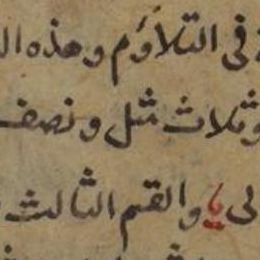 فى التلاؤم وهذه
وثلاث مثل ونصف
والقسم الثالث